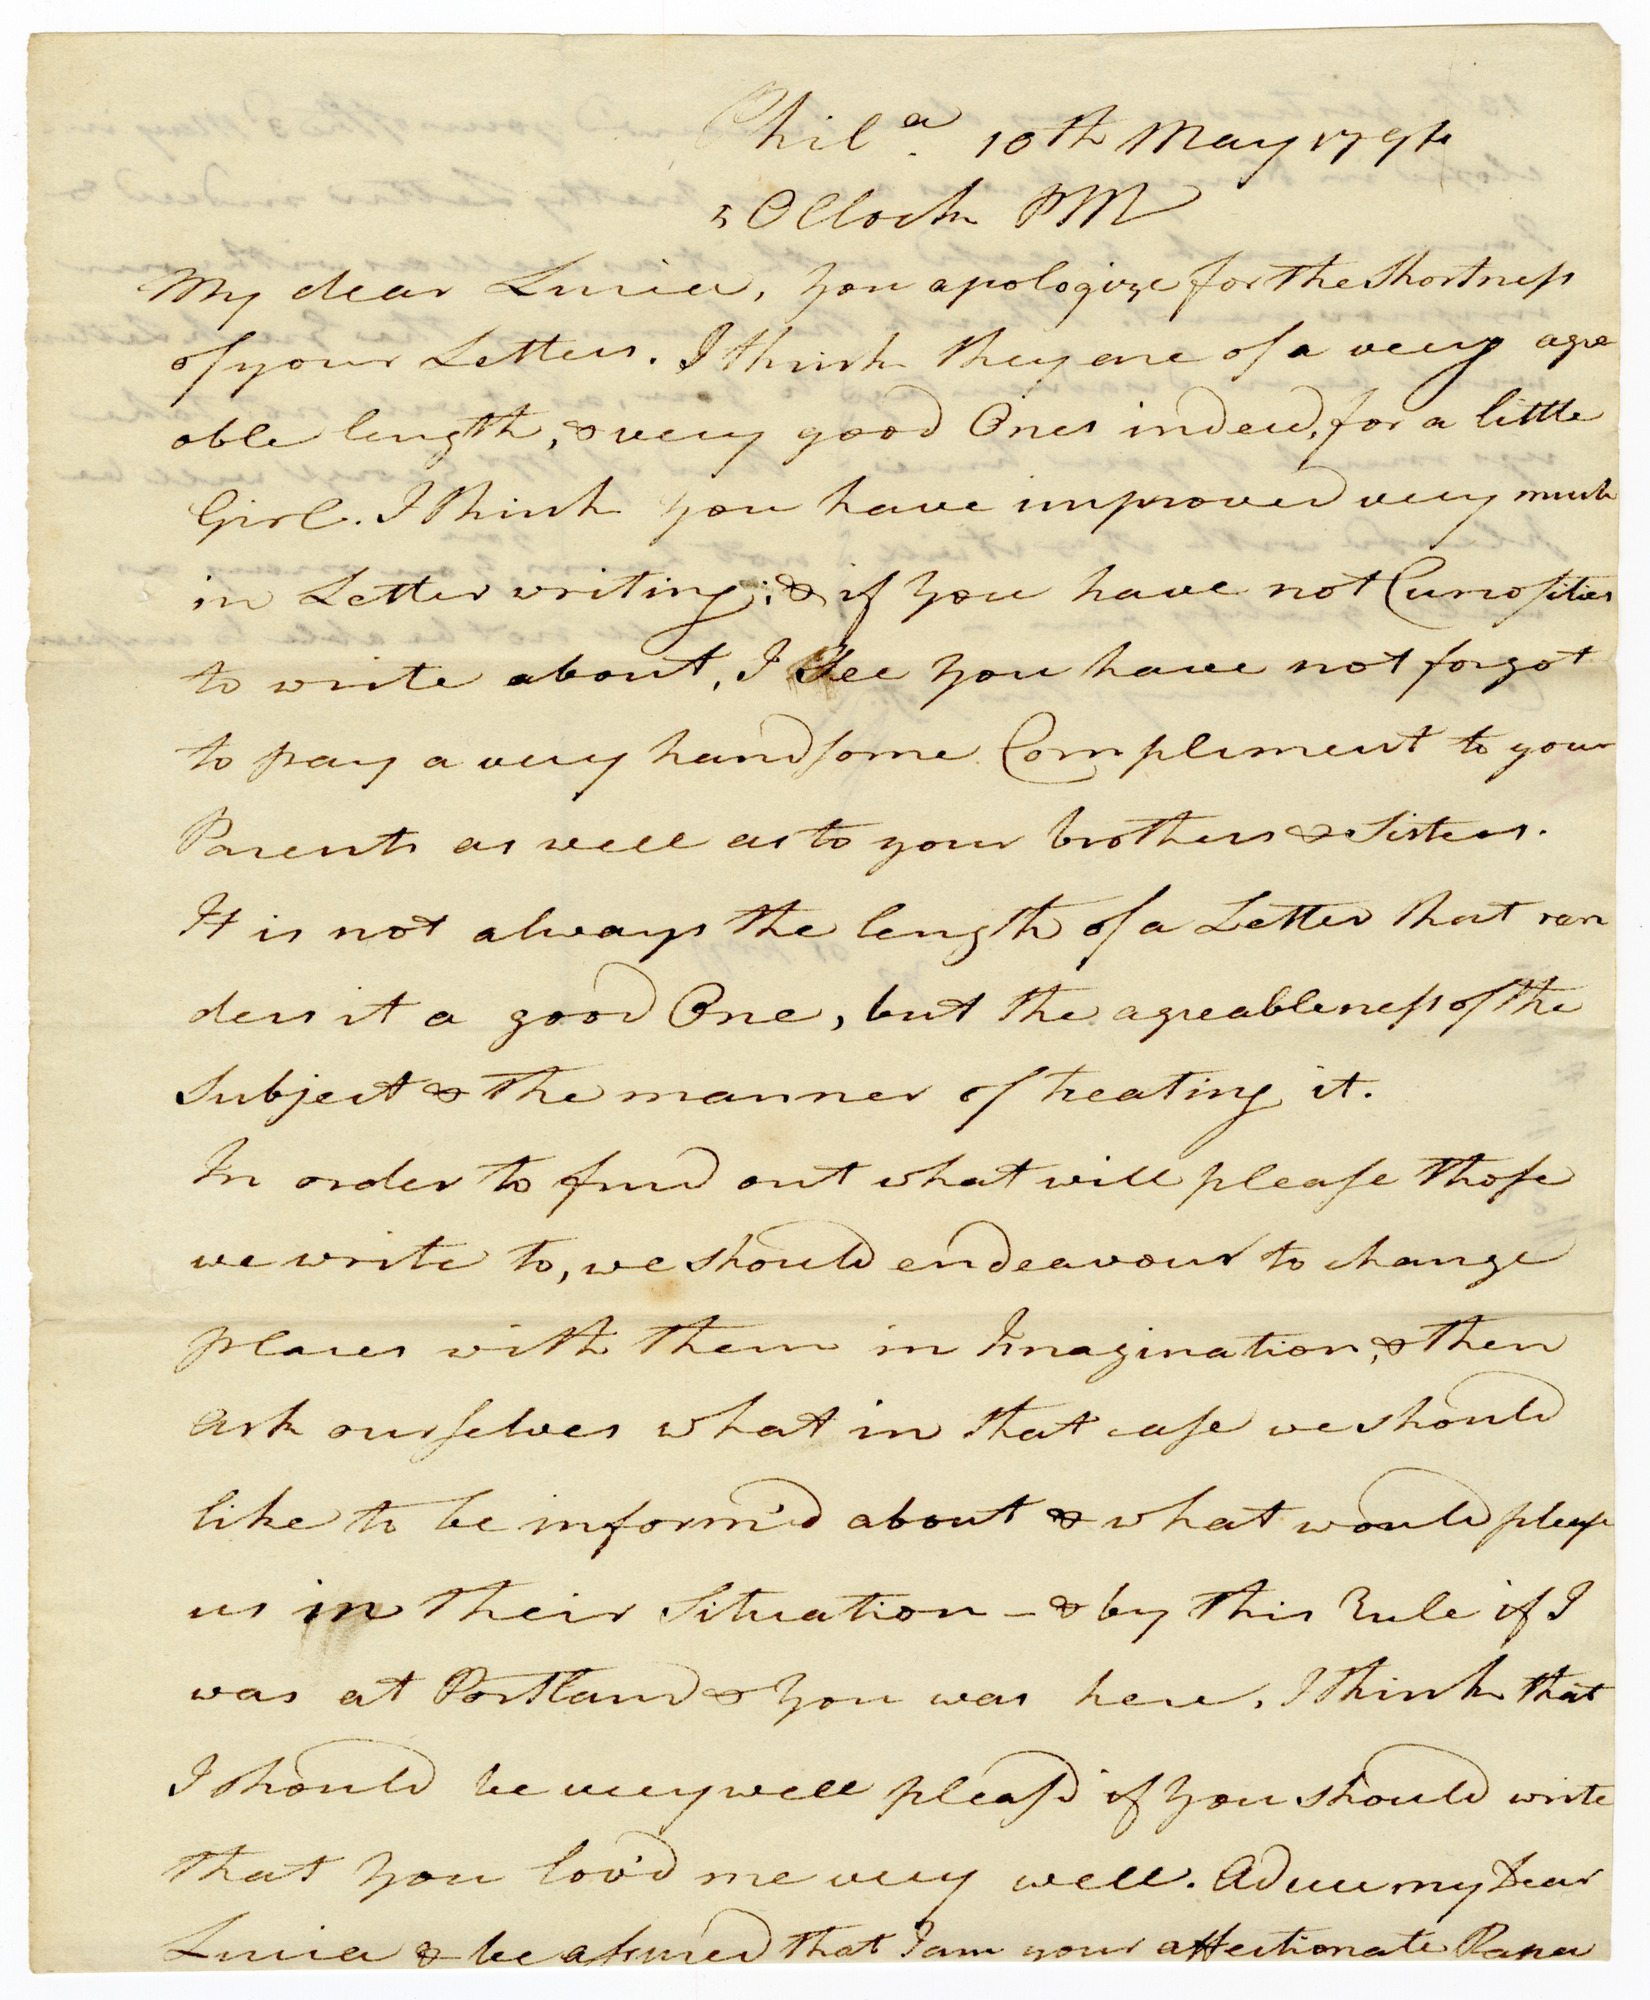 Phila. 10th May 1794
5 OClock PM
My dear Lucia, You apologize for the Shortness
of your Letters. I think they are of a very agre
able length, & very good Ones indeed, for a little
Girl. I think you have improved very much
in Letter writing; & if You have not Curiosities
to write about, I See You have not forgot
to pay a very handsome Compliment to your
Parents as well as to your brothers & Sisters.
It is not always the length of a Letter that ren
ders it a good One, but the agreableness of the
Subject & the manner of treating it.
In order to find out what will please those
we write to, we should endeavour to change
places with them in Imagination, & then
ask ourselves what in that case we should
like to be inform'd about & what would please
us in their Situation – & by this Rule if I
was at Portland & You was here, I think that
I should be very well pleas'd if You should write
that You lov'd me very well. Adieu my Dear
Lucia & be assured that I am your affectionate Papa